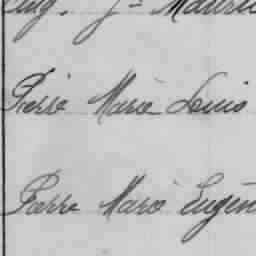 Eug. Jn Mauric
Pierre Marie Louis
Pierre Marie Eugèn